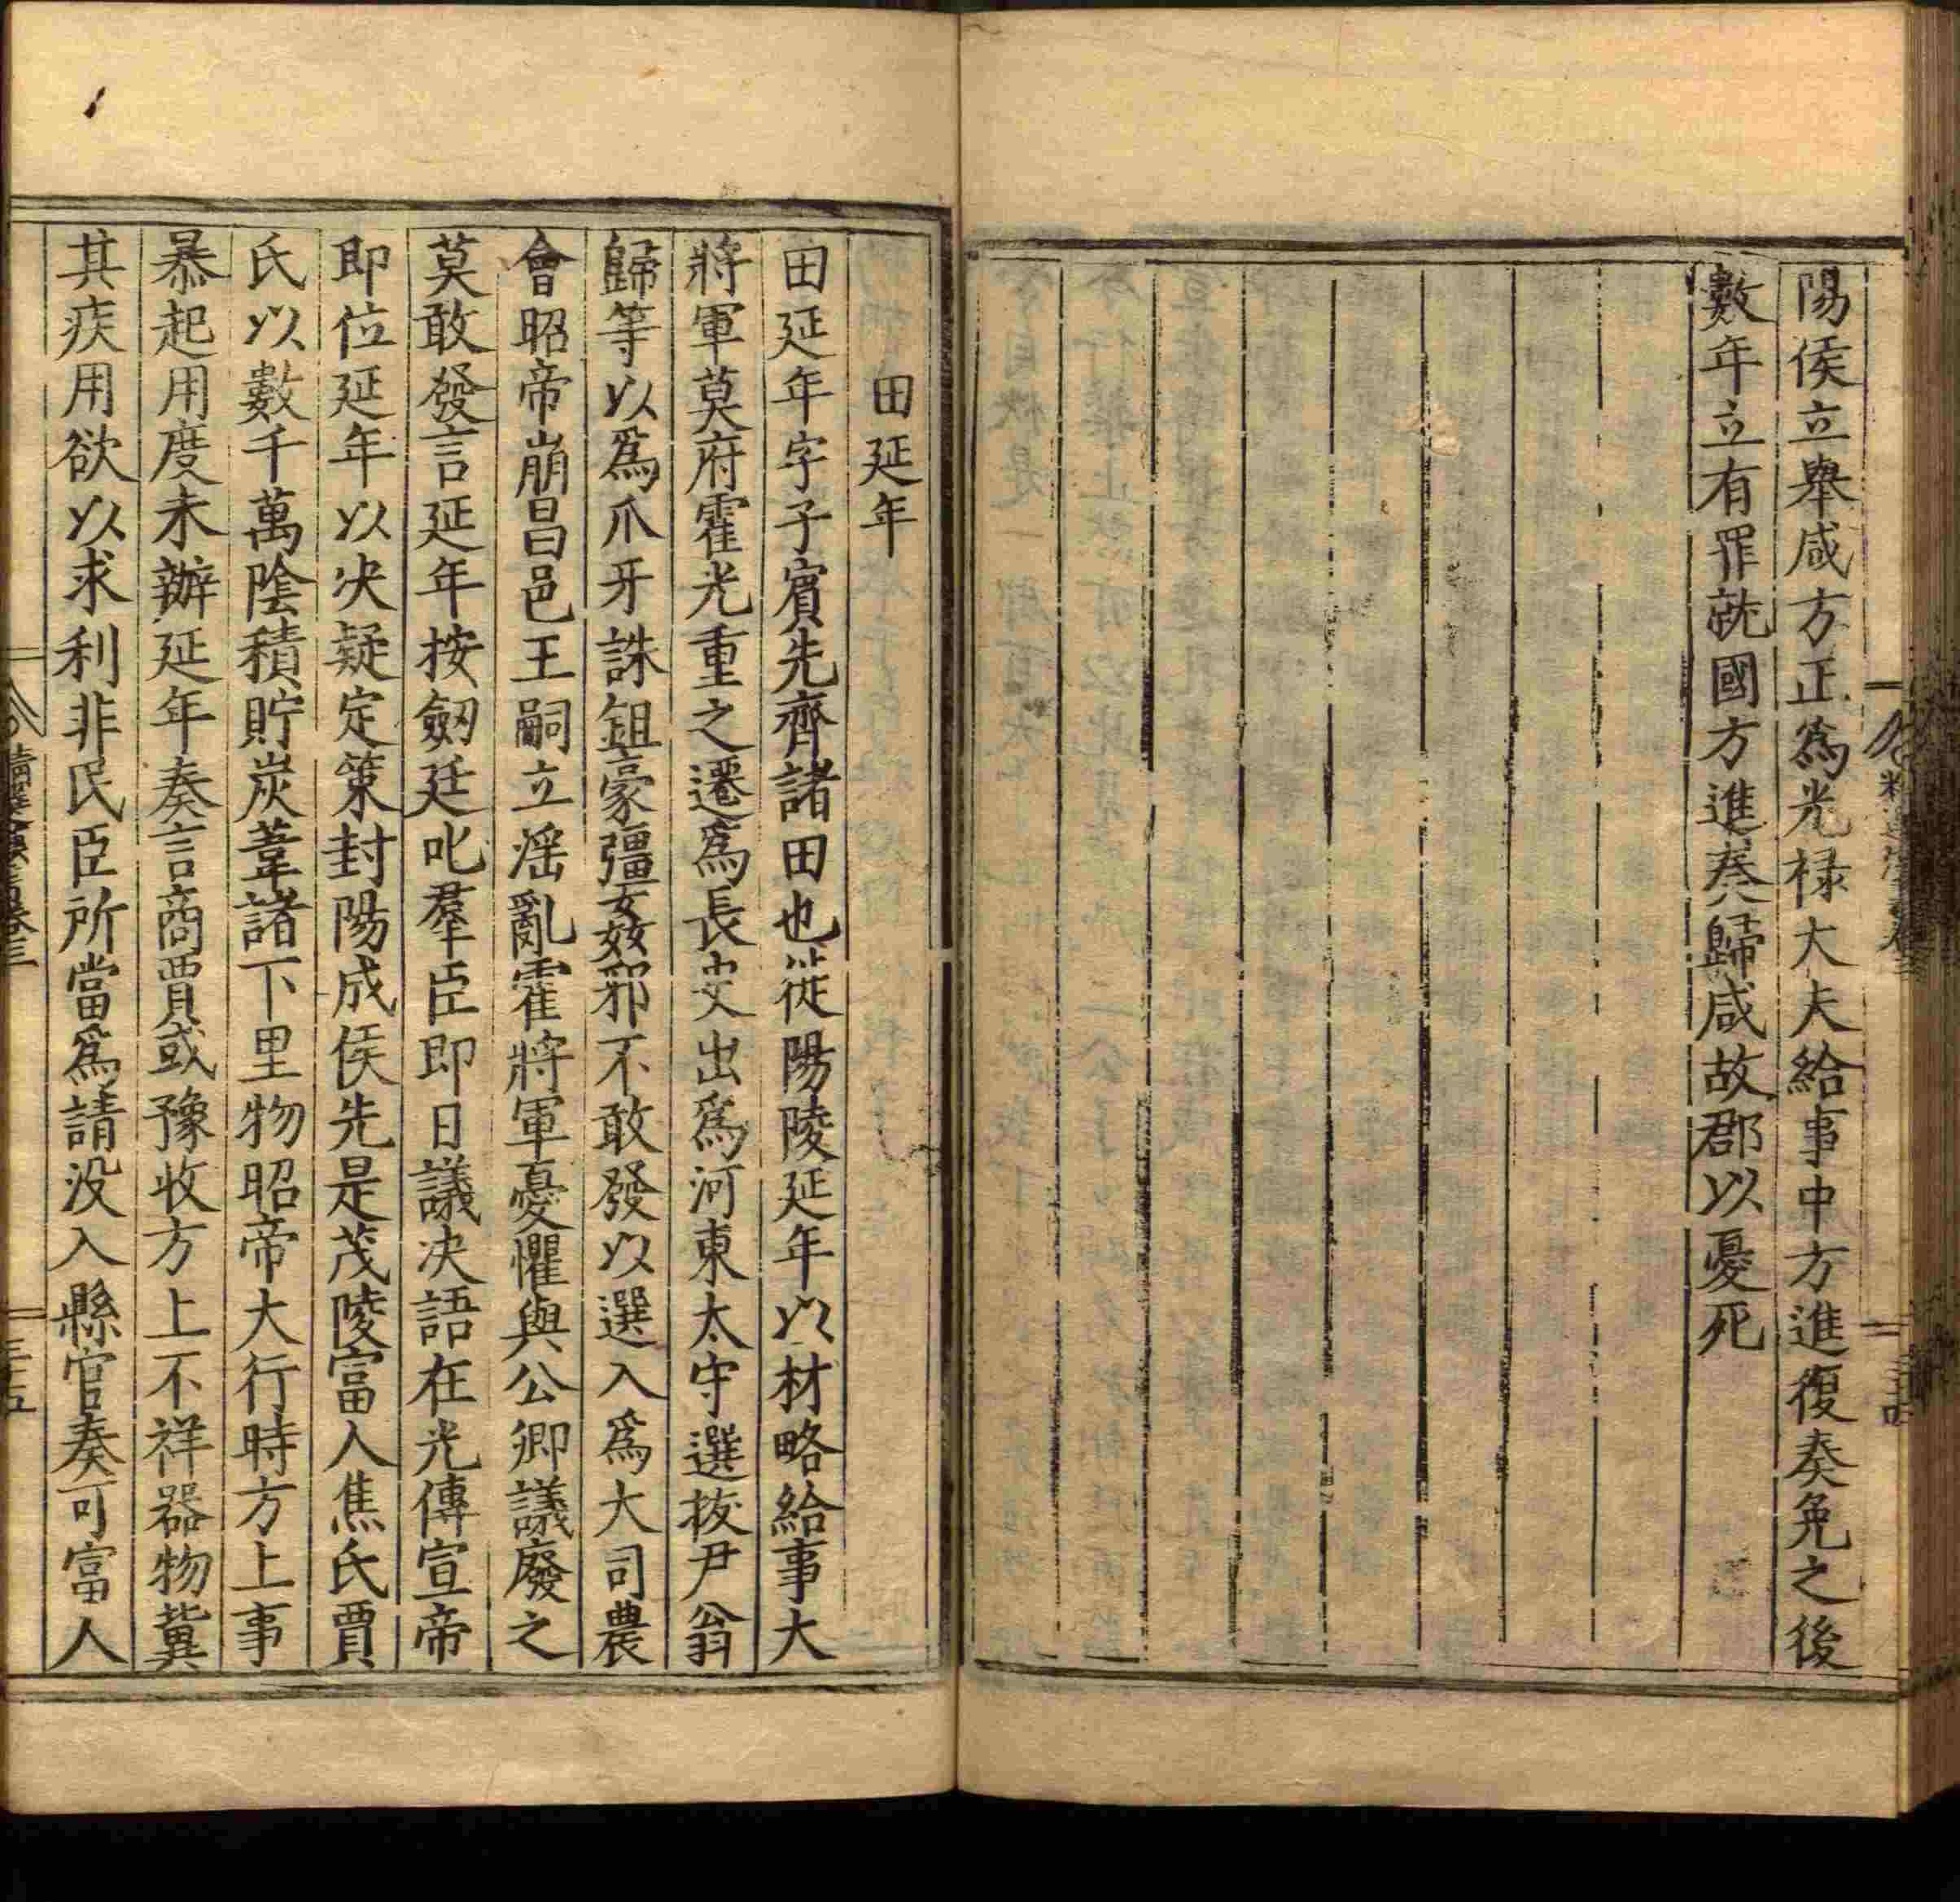 陽侯立舉咸方正爲光祿大夫給事中方進復奏免之後
數年立有罪就國方進奏歸咸故郡以憂死
田延年
田延年字子賓先齊諸田也徙陽陵延年以材略給事大
將軍莫府霍光重之遷爲長史出爲河東太守選拔尹翁
歸等以爲爪牙誅鉏豪彊姦邪不敢發以選入爲大司農
會昭帝崩昌邑王嗣立滛亂霍將軍憂懼與公卿議廢之
莫敢發言延年按劒廷叱羣臣即日議决語在光傳宣帝
即位延年以决疑定策封陽成侯先是茂陵富人焦氏賈
氏以數千萬陰積貯炭葦諸下里物昭帝大行時方上事
暴起用度未辦延年奏言商賈或豫收方上不祥器物冀
其疾用欲以求利非民臣所當爲請没入縣官奏可富人
卷三
三五